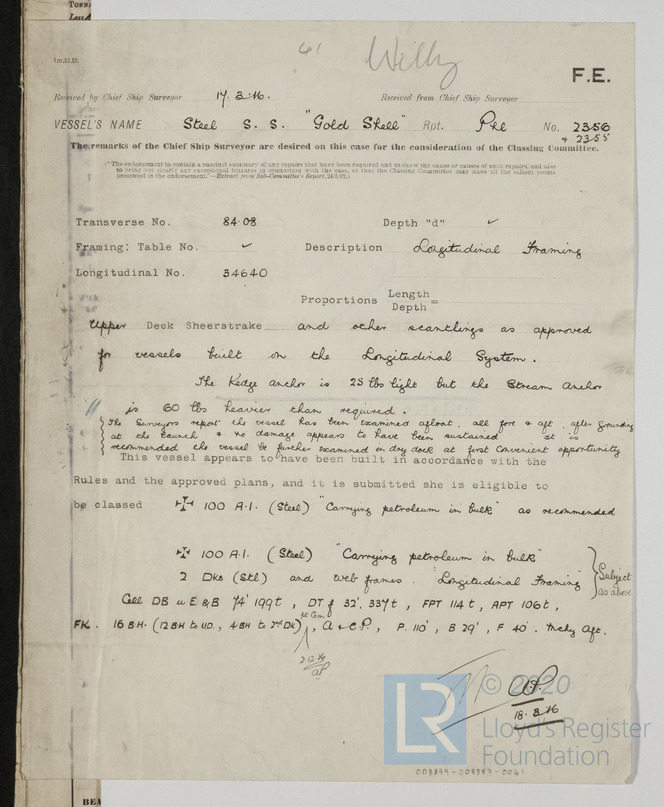 TONNA
61 Willy
1m.12.15.
F.E.
Received by Chief Ship Surveyor 17.3.16. Received from Chief Ship Surveyor
VESSEL'S NAME Steel S. S. "Gold Shell" Rpt. Phl No. 2356
+ 2355
The remarks of the Chief Ship Surveyor are desired on this case for the consideration of the Classing Committee.
("The endorsement to contain a succinct summary of any repairs that have been required and to show the cause or causes of such repairs, and also
to bring out clearly any exceptional features in connection with the case, so that the Classing Committee may have all the salient points
presented in the endorsement."—Extract from Sub-Committee's Report, 24/5/92.)
Transverse No. 84.08 Depth "d" ✓
Framing: Table No. ✓ Description Longitudinal Framing
Longitudinal No. 34640
Proportions Length
Depth =
Upper Deck Sheerstrake and other scantlings as approved
for vessels built on the Longitudinal System.
The Kedge anchor is 25 lbs light but the Stream Anchor
is 60 lbs heavier than required.
The Surveyors report the vessel has been examined afloat, all fore & aft, after grounding
at the launch & no damage appears to have been sustained It is
recommended the vessel be further examined in dry dock at first convenient opportunity
This vessel appears to have been built in accordance with the
Rules and the approved plans, and it is submitted she is eligible to
be classed ✠ 100 A.1. (Steel) "Carrying petroleum in bulk" as recommended
✠ 100 A.1. (Steel) "Carrying petroleum in bulk"
2 Dks (Stl) and web frames. "Longitudinal Framing" } Subject as above
Cell DB u E & B 74' 199t, DT f 32', 337t, FPT 114t, APT 106t,
FK. 16 B.H. (12 BH to UD., 4 BH to 2nd Dk), A & CP., P. 110', B 29', F 40'. Mchy Aft.
pt Cem
2.12.16
AP
AP.
18.3.16
© 2020
LR
Lloyd's Register
Foundation
003899-003987-0041
BEA